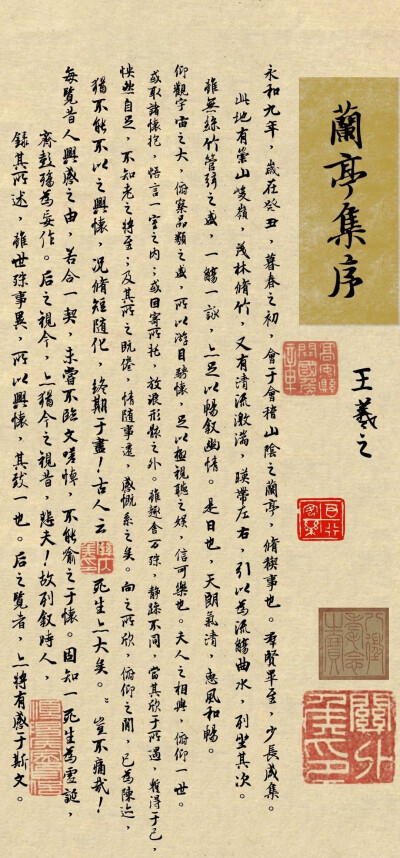 蘭亭集序
王羲之
永和九年，歲在癸丑，暮春之初，會于會稽山陰之蘭亭，脩禊事也。羣賢畢至，少長咸集。
此地有崇山峻嶺，茂林脩竹，又有清流激湍，暎帶左右，引以為流觴曲水，列坐其次。
雖無絲竹管弦之盛，一觴一詠，亦足以暢叙幽情。是日也，天朗氣清，惠風和暢。
仰觀宇宙之大，俯察品類之盛，所以游目騁懷，足以極視聽之娛，信可樂也。夫人之相與，俯仰一世。
或取諸懷抱，悟言一室之內；或因寄所托，放浪形骸之外。雖趣舍万殊，靜躁不同，當其欣于所遇，暫得于己，
怏然自足，不知老之將至；及其所之既倦，情隨事遷，感慨系之矣。向之所欣，俯仰之間，已為陳迹，
猶不能不以之興懷，況脩短隨化，終期于盡！古人云：死生亦大矣。”豈不痛哉！
每覽昔人興感之由，若合一契，未嘗不臨文嗟悼，不能喻之于懷。固知一死生為虛誕，
齊彭殤為妄作。后之視今，亦猶今之視昔，悲夫！故列叙時人，
錄其所述，雖世殊事異，所以興懷，其致一也。后之覽者，亦將有感于斯文。